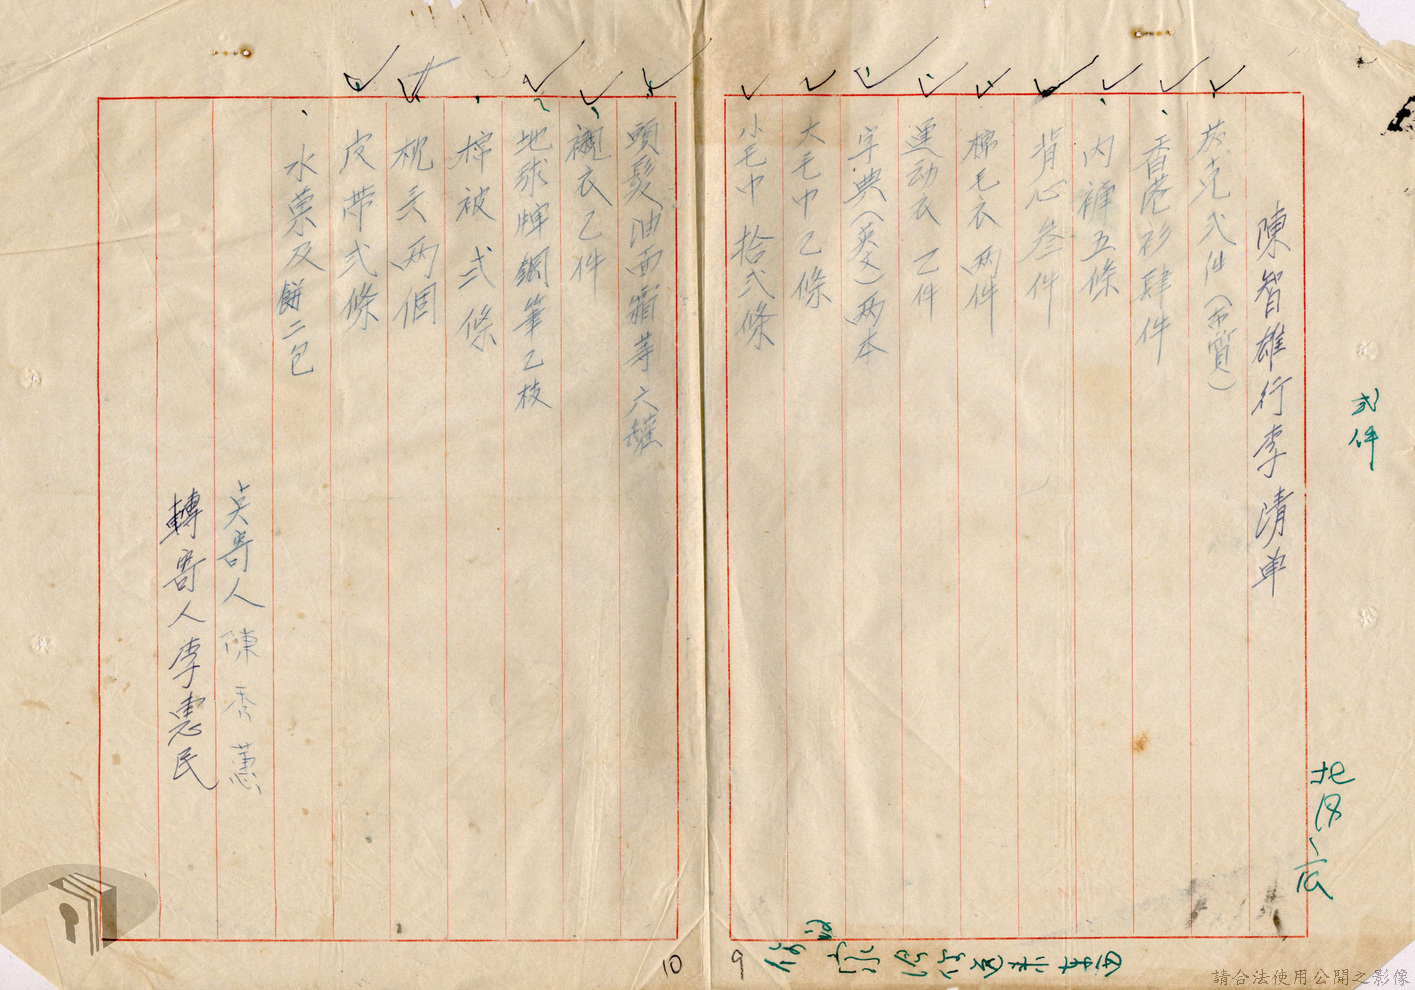 陳智雄行李清單
茄克弍件(布質)
香港衫肆件
內褲五條
背心叁件
棉毛衣两件
運动衣乙件
字典(英文)两本
大毛巾乙條
小毛巾拾弍條
頭髮油面霜等六罐
襯衣乙件
地球牌鋼筆乙枝
棉被弍條
枕头两個
皮帶弍條
水菓及餅二包
寄人陳秀蕙
轉寄人李惠民
弍件
9
10
請合法使用公開之影像